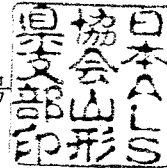 日本ALS
協会山形
県支部印